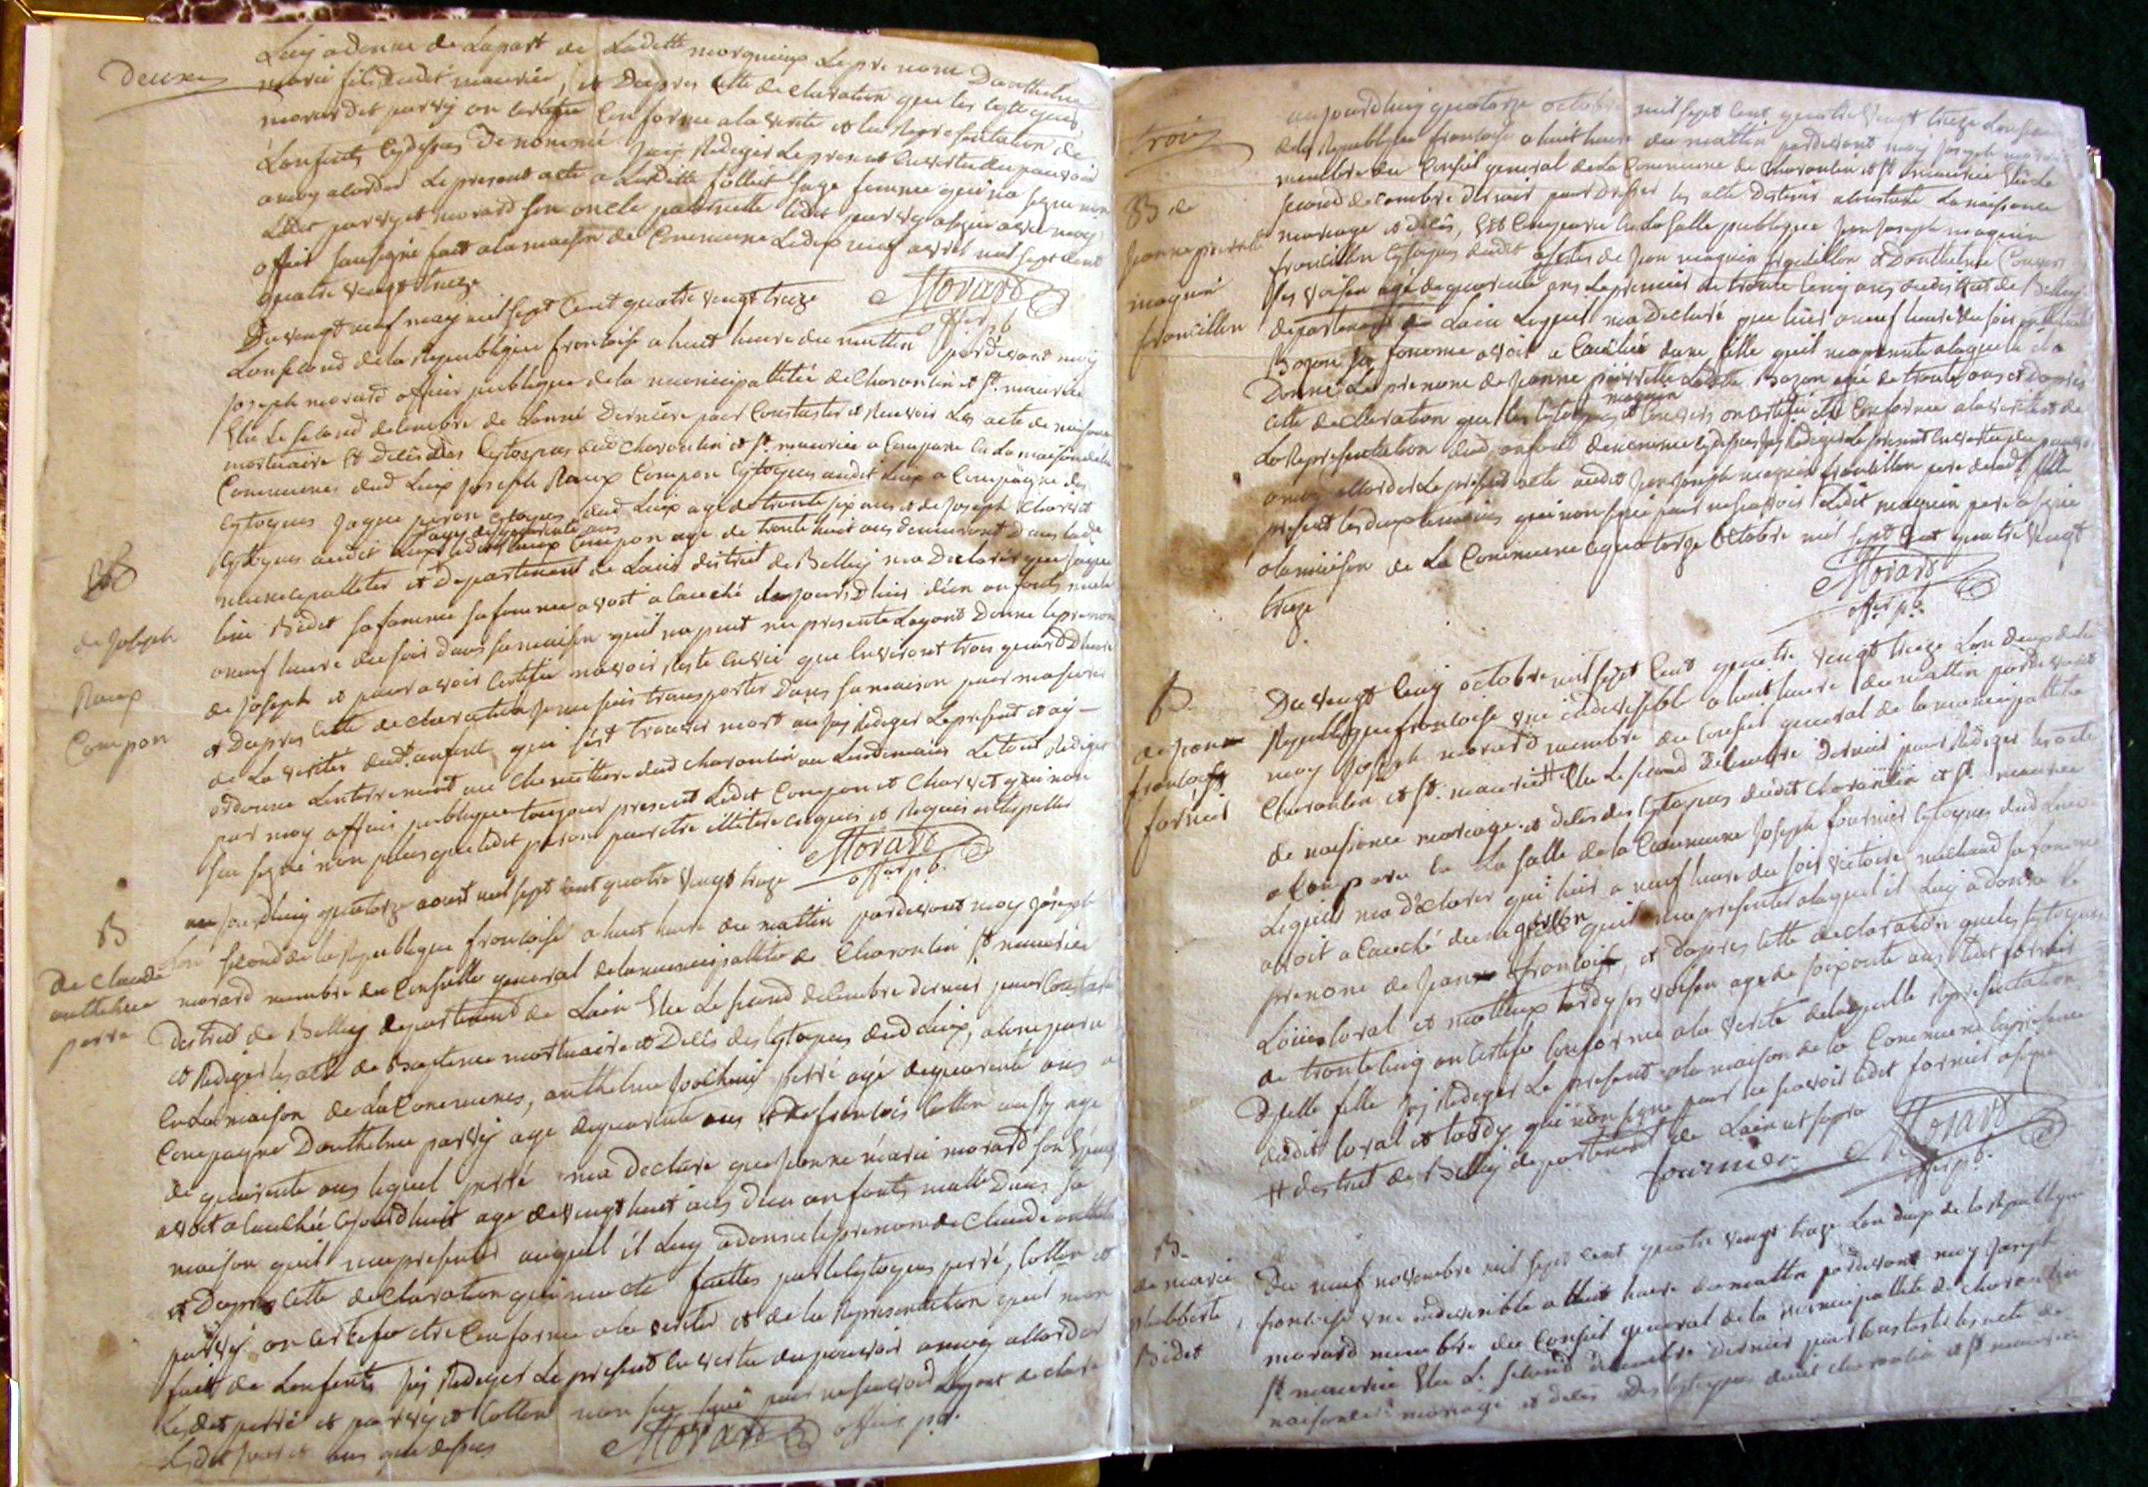 deux
Luy a donné de la part de Ladette morquin le prenom Danthelme
marie fils dudit maurice, et Dapres cette declaration que les cytoyens
morard et parvy on certifié conforme a la verite et la Representation de
Lenfents cydessus denommé Jay Rediger le present en vertu du pouvoir
a moy alordes Le present acte a Laditte follet sage femme qui na signe non
Ledit parvy et morard son oncle paternelle ledit parvy a signe avec moy
officié sousigné fait a la maison de Commune Ledix neuf avril mil sept cent
quatre vengt treze
Morard
offier pb
Du vengt neuf may mil sept cent quatre vengt treze
Lon second de la Republique francoise a huit heure du mattin pardevant moy
Joseph morard officier publique de la municipallitée de Charantin et st. maurice
Elu Le second decembre de Lanné Derniere pour Constater et Recevoir Les acte de naisance
mortuaire et decès des Cytoyens dud Charantin et st maurice a Comparu en La maison de la
Communes dud Lieux Joseph Roux Compon Cytoyens audit Lieux a Compagne des
cytoyens Jaque peron cytoyens dud Lieux age de trente six ans et de Joseph Charvet
agé de quarante ans
Cytoyens audit Lieux Compon age de trente huit ans demeurant Dans lad.
municipallites et departement de Lain district de Belley ma Declarer que Jaque
line Bidet sa famme sa femme avoit a Cauché desjourdhuis dun enfents malle
a neuf heure du soir dans sa maison quil na peut me presente Layant Donne le prenom
de Joseph et pour avoir certifié navoir Reste en vie que Environt trois quard dheure
et Dapres cette declaration Je me suis transporter Dans sa maison pour masurer
de La verites dud. enfents qui sest trouver mort ausy Rediger Le present et ay
ordonne Lenterrement au Chemittiere dud Charantin au Lendemain Le tout Rediger
par moy officier publique toujour present Ledit Compon et Charvet qui non
seu signé non plus que ledit peron pour etre illitere enquis et Requis
Morard
offier pb.
B
de Joseph
Roux
Compon
aujourdhuy quatorze aoust mil sept cent quatre vengt treze
Lon second de la Republique francoise a huit heure du mattin pardevant moy Joseph
morard membre du Conseille general de la municipallite de Charantin st maurice
destrict de Belley departement de Lain Elu Le second decembre dernier pour Constater
et Rediger les acte de Baptence mortuaire et Decès des Cytoyens dud Lieux, a Comparu
en La maison de La Communes, anthelme Joachin perré agé de quarente ans a
Compagne Danthelme parvy age de quarente ans et de francois Cotton aussy age
de quarente ans lequel perré ma declare que Jeanne marie morard son Epouse
avoit a Cauchée cejourdhuit age de vengt huit ans dun enfents malle Dans sa
maison quil ma presenter auquel il Luy a donné le prenom de Claude anthelme
et Dapres cette declaration qui ma ete faittes par le Cytoyens perré, Cotton et
parvy on certifié etre Conforme a la veriter et de la Representation quil mon
fait de Lenfents Jay Rediger Le present en vertu du pouvoir a moy allorder
Ledet perré et parvy et Cotton non seu signé pour ne scavoir Layant declare
Ledet Jour et ans que dessus
Morard
officié pb.
B
De Claude
anthelme
perre
trois
aujourdhuy quatorze octobre mil sept cent quatre vengt treze Lon second
de la Republique francoise a huit heure du mattin pardevant moy Joseph morard
membre du Conseil general de La Commune de Charantin et st maurice Elu Le
second decembre dernier pour Dresser les acte Distines a Constater La naisence
mariage et decès, Est Comparu en La Salle publique Jean Joseph maquin
francillon Cytoyens dudit assistes de Jean maquin francillon et Danthelme Convers
ses voisin agé de quarente ans Le premier de trente cinq ans du district de Belley
departement de Lain Lequel ma Declaré que hier a neuf heure du soir
Bozon sa femme avoit a Cauchée dune fille quil ma presente a laquelle il a
Donné Le prenom de Jeanne pierrette Laditte Bozon agé de trente ans et dapres
maquin
cette declaration que les Cytoyens et Convers on certifié etre Conforme a la verite et de
La Representation dud enfent denomme cydessus Jay Rediger Le present en vertu du pouvoir
a moy allorder Le present acte audit Jean Joseph maquin francillon pere de lad. fille
present les deux temoins qui non signé pour ne scavoir Ledit maquin pere a signé
a la maison de La Commune a quatorze octobre mil sept cent quatre vengt
treze
Morard
offier p b.
B de
Jeanne pierrette
maquin
francillon
Du vengt cinq octobre mil sept cent quatre vengt treze Lon deux de la
Republique francoise une indivisible a huit heure du mattin pardevant
moy Joseph morard membre du Conseil general de la municipallite
Charantin et st. maurice # Elu Le second Decembre Dernier pour Rediger les acte
de naisance mariage et decès des Cytoyens dudit Charantin et st. maurice
a Comparu en La salle de La Commune Joseph fournier Cytoyens dud Lieux
Lequel ma déclarer que hier a neuf heure du soir victoire michaud sa femme
avoit a Cauché dune garson quil ma presenter alaquel il Luy a donné le
prenom de Jean francois, et dapres cette declaration que les Cytoyens
Louis Coral et matthieux tardy ses voisin age de soixante ans ledit fornier
de trente cinq on certifié Conforme a la verite de laquelle Representation
dycelle fille Jay Rediger Le present a la maison de la Commune en presence
dudit Coral et tardy qui non signé pour ne scavoir ledit fornier a signe
# destrict de Belley departement de Lain ut supra
fournier
Morard
offier pb.
B.
de Jean
francois
fornier
Du neuf novembre mil sept cent quatre vengt treze Lon deux de la Republique
francoise une indivisible a huit heure du mattin pardevant moy Joseph
morard membre du Conseil general de la municipallite de Charantin
st maurice Elu Le second decembre dernier pour Constater les acte de
naisance mariage et decès des Cytoyens dudit Charantin et st maurice
B.
de marie
philiberte
Bidet